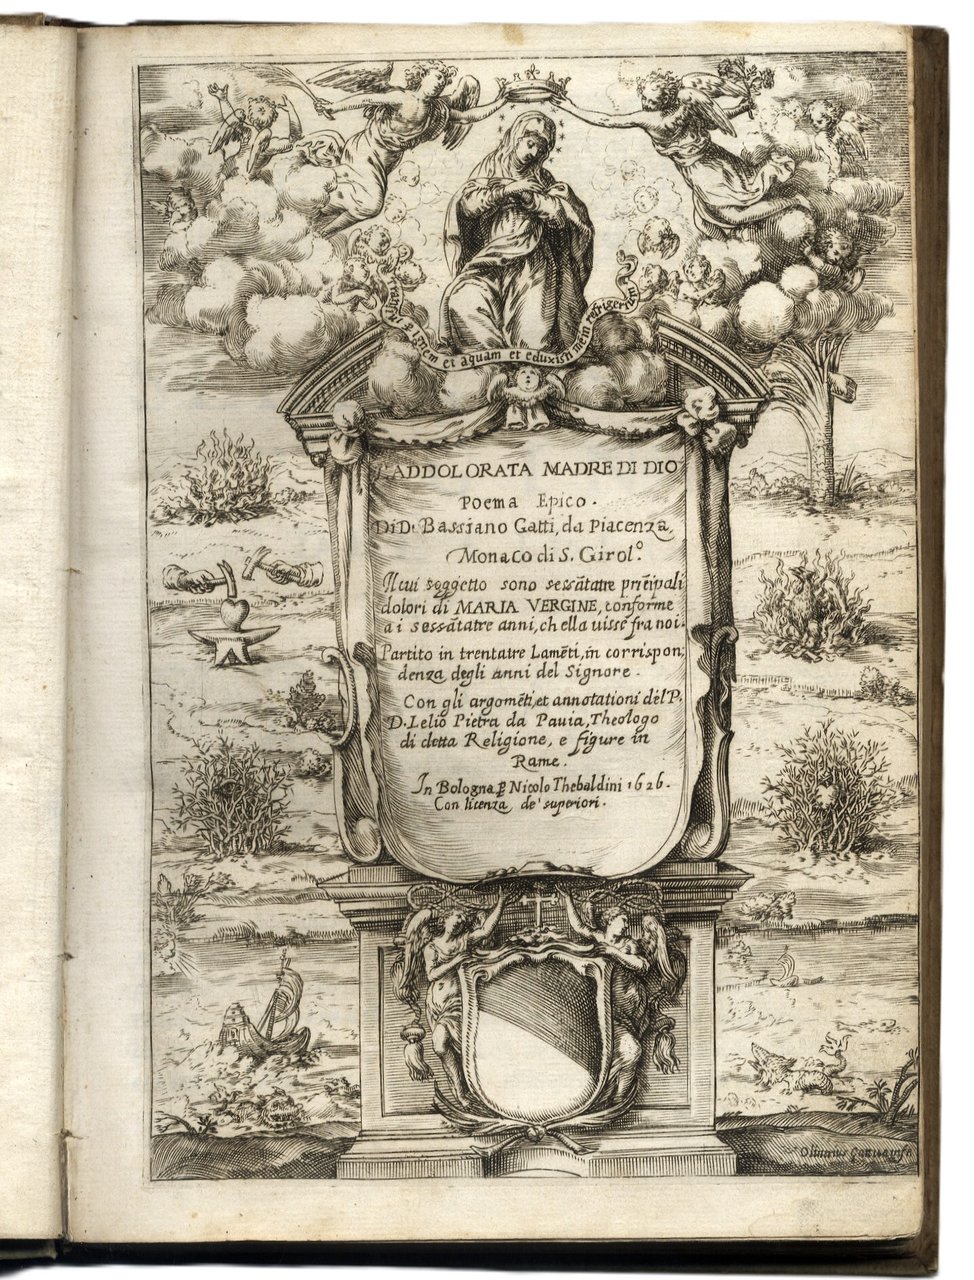 transivi p ignem et aquam et eduxisti me in refrigerium
L'ADDOLORATA MADRE DI DIO
Poema Epico.
Di D. Bassiano Gatti, da Piacenza,
Monaco di S. Girol.º
Il cui soggetto sono sessãtatre prĩcipali
dolori di MARIA VERGINE, conforme
a i sessãtatre anni, ch ella uisse fra noi.
Partito in trentatre Lamẽti, in corrispon:
denza degli anni del Signore.
Con gli argomẽti, et annotationi del P.
D. Lelio Pietra da Pauia, Theologo
di detta Religione, e figure in
Rame.
In Bologna ꝑ Nicolo Thebaldini 1626.
Con licenza, de' superiori.